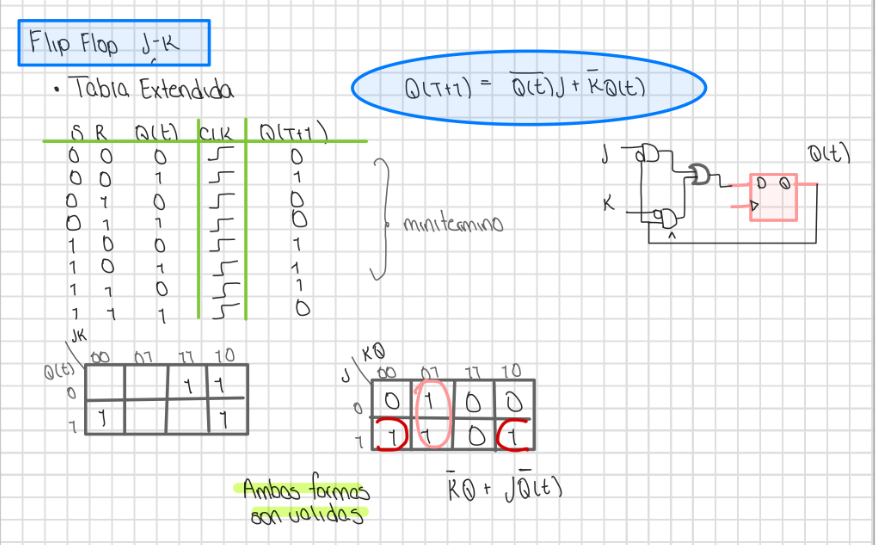 Flip Flop J-K
• Tabla Extendida
Q(T+1) = \overline{Q(t)}J + \overline{K}Q(t)
S R Q(t) CLK Q(T+1)
0 0 0 0
0 0 1 1
0 1 0 0
0 1 1 0
1 0 0 1
1 0 1 1
1 1 0 1
1 1 1 0
minitermino
J
K
D Q
Q(t)
JK
00 01 11 10
Q(t)
0 1 1
1 1 1
KQ
J 00 01 11 10
0 0 1 0 0
1 1 1 0 1
Ambas formas
son validas
\overline{K}Q + J\overline{Q}(t)